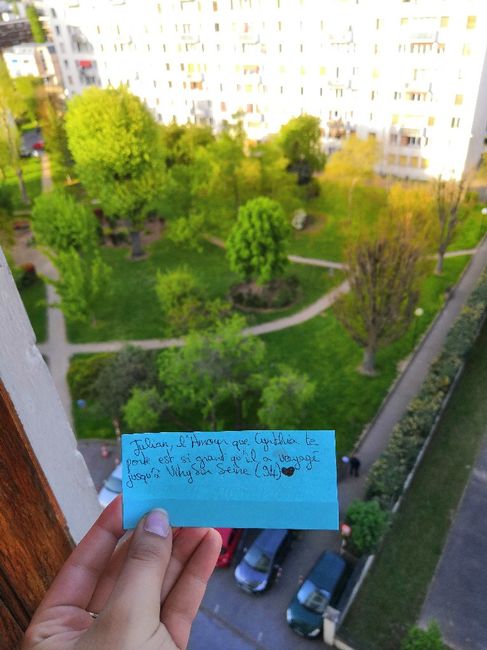 Julian, l'Amour que Cynthia te
porte est si grand qu'il a voyagé
jusqu'à Vitry sur Seine (94)🖤